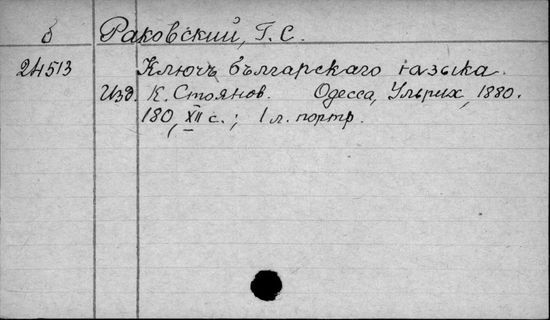 б Раковский, Г. С.
24513 Ключъ българскаго ꙗзыка.
Изд. К. Стоянов. Одесса, Ульрих, 1880.
180, XII с.; 1 л. портр.